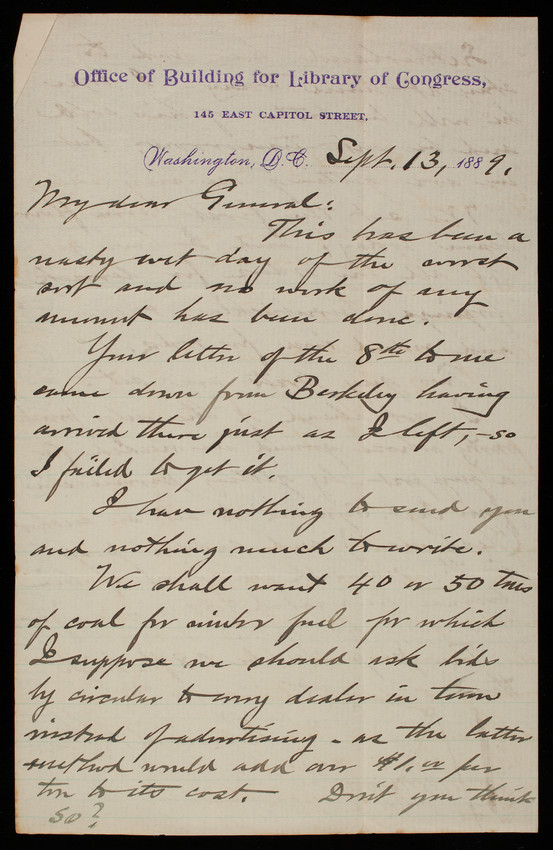 Office of Building for Library of Congress,
145 EAST CAPITOL STREET,
Washington, D.C. Sept. 13, 1889.
My dear General:
This has been a
nasty wet day of the worst
sort and no work of any
amount has been done.
Your letter of the 8th to me
came down from Berkeley having
arrived there just as I left, - so
I failed to get it.
I have nothing to send you
and nothing much to write.
We shall want 40 or 50 tons
of coal for winter fuel for which
I suppose we should ask bids
by circular to every dealer in town
instead of advertising - as the latter
method would add over $1.00 per
ton to its cost. Don't you think
so?